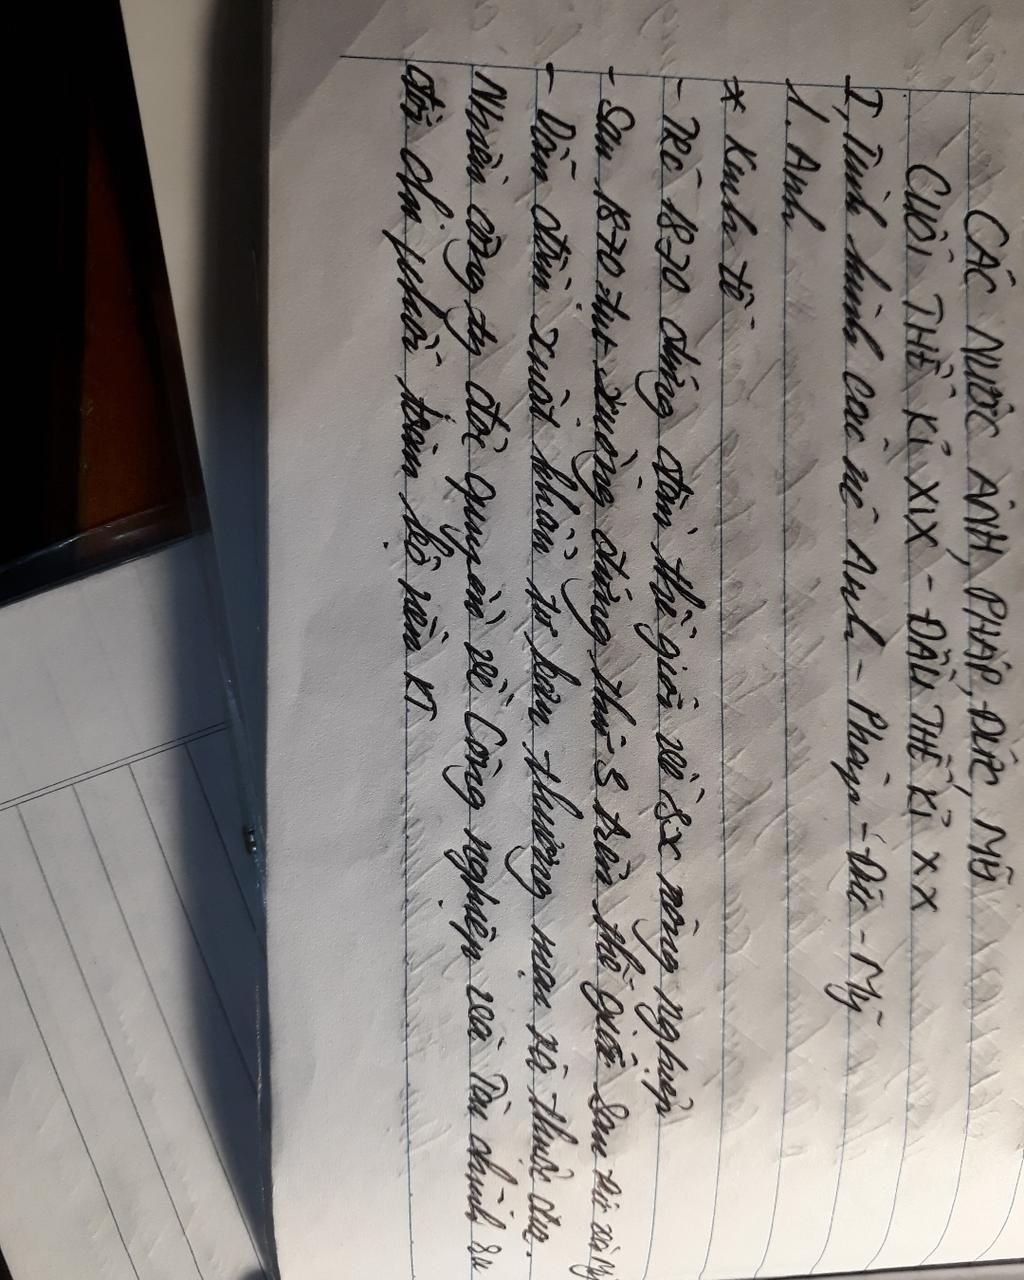 CÁC NƯỚC ANH, PHÁP, ĐỨC, MỸ
CUỐI THẾ KỈ XIX - ĐẦU THẾ KỈ XX
I, Tình hình các nc Anh - Pháp - Đức - Mỹ
1. Anh
* Kinh tế
- Trc 1870 đứng đầu thế giới về sx nông nghiệp
- Sau 1870 tụt xuống đứng thứ 3 trên thế giới sau Đức và Mỹ
- Dẫn đầu xuất khẩu tư bản thương mại và thuộc địa.
Nhiều công ty độc quyền về Công nghiệp và Tài chính
đã chi phối toàn bộ nền KT